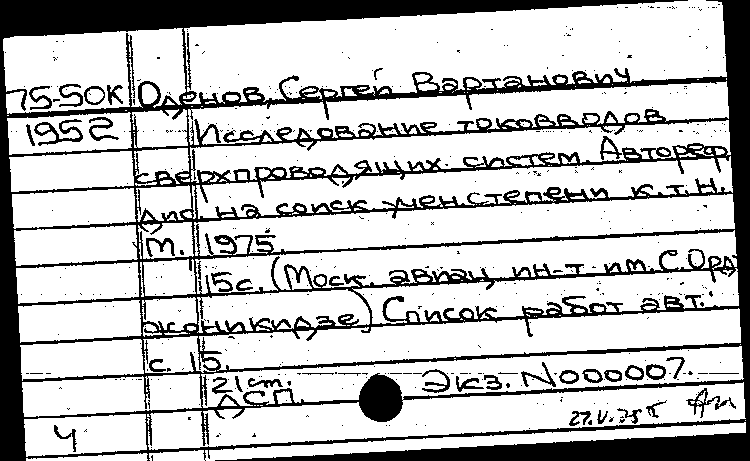 75-50К Оденов, Сергей Вартанович.
1952 Исследование токовводов
сверхпроводящих систем. Автореф.
дис. на соиск. учен.степени к.т.н.
М. 1975.
15с. (Моск. авиац. ин-т им. С. Орд
жоникидзе) Список работ авт.:
с. 15.
21 cm.
ДСП. Экз. N000007.
27.V.75
Ч